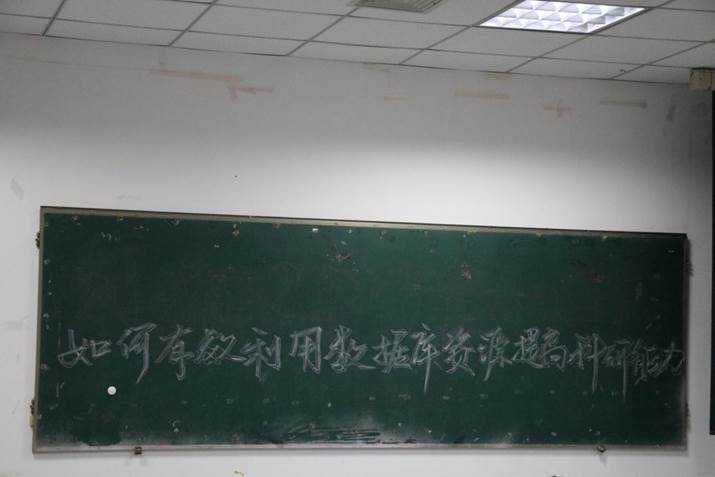 如何有效利用数据库资源提高科研能力